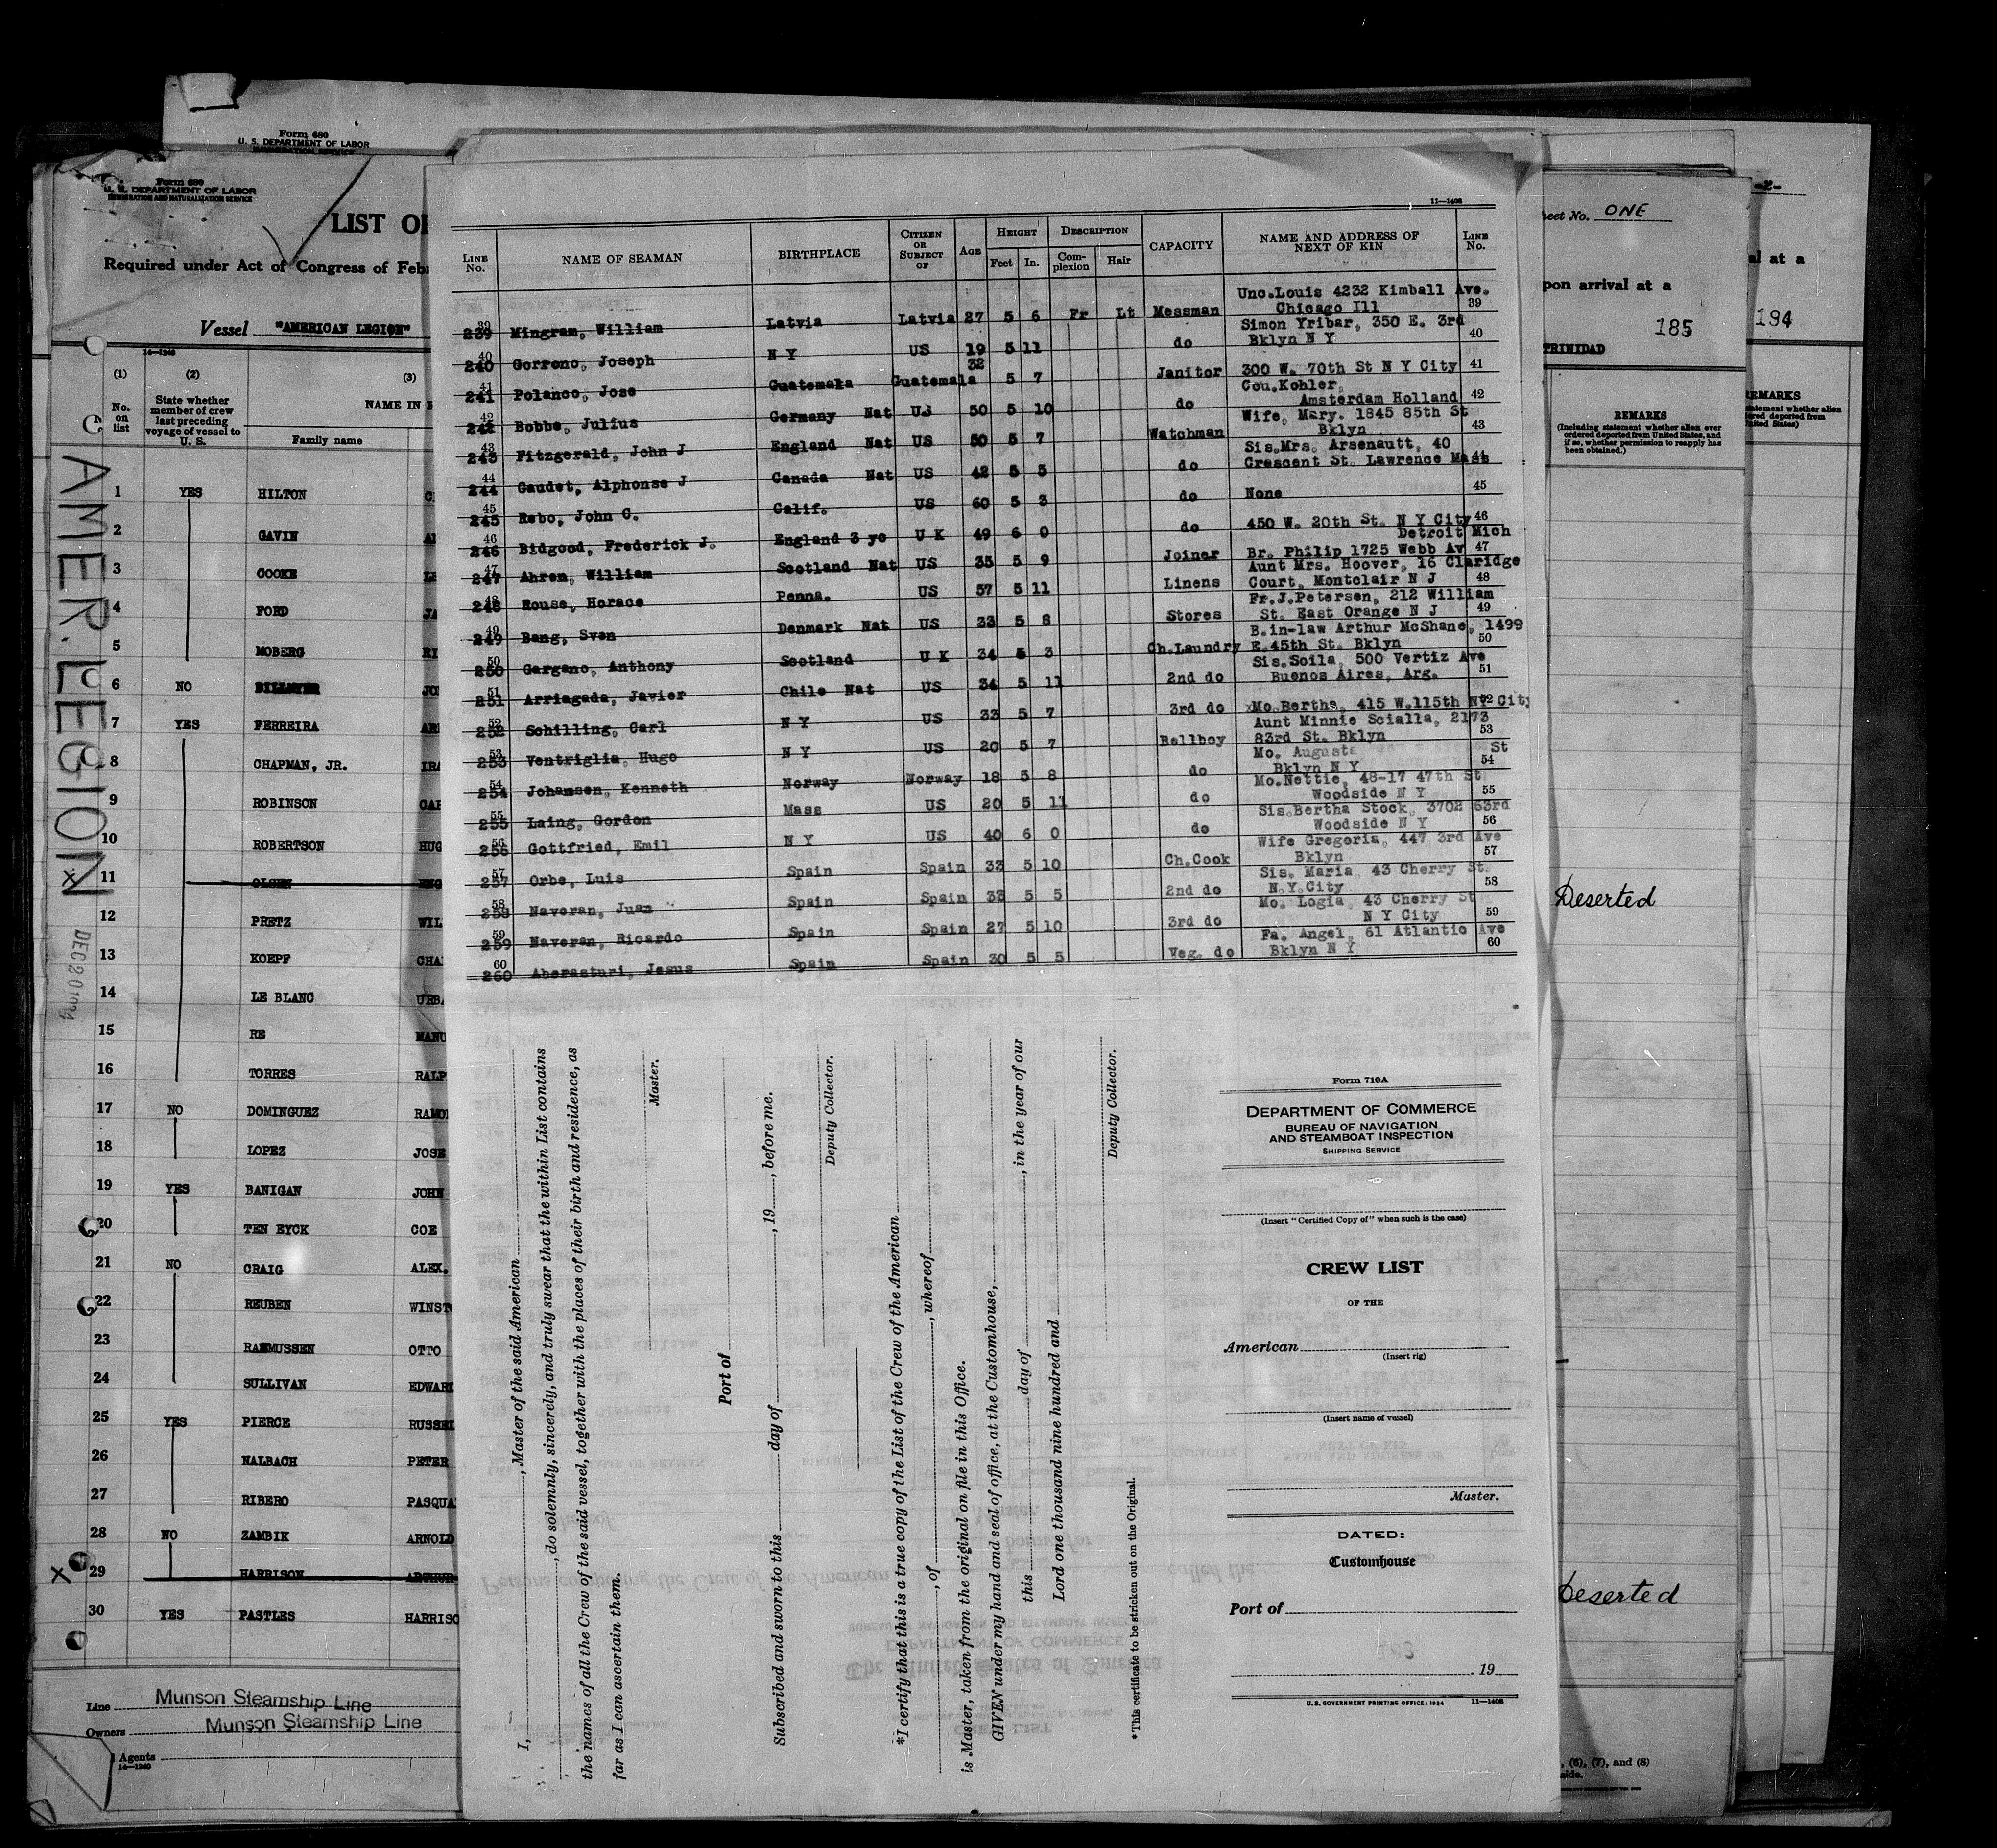 Form 680
U. S. DEPARTMENT OF LABOR
IMMIGRATION SERVICE
Form 680
U. S. DEPARTMENT OF LABOR
IMMIGRATION AND NATURALIZATION SERVICE
LIST OF
Required under Act of Congress of Feb
Vessel "AMERICAN LEGION"
14—1240
(1) (2) (3)
No. on list
State whether member of crew last preceding voyage of vessel to U. S.
NAME IN
Family name
1 YES HILTON
2 GAVIN
3 COOKE
4 FORD
5 MOBERG
6 NO
7 YES FERREIRA
8 CHAPMAN, JR. IRA
9 ROBINSON
10 ROBERTSON HUG
11 OLSEN
12 PRETZ WIL
13 KOEPF CHA
14 LE BLANC URBA
15 RE MANU
16 TORRES RALP
17 NO DOMINGUEZ RAMO
18 LOPEZ JOSE
19 YES BANIGAN JOHN
20 TEN EYCK COE
21 NO CRAIG ALEX.
22 REUBEN WINST
23 RASMUSSEN OTTO
24 SULLIVAN EDWARD
25 YES PIERCE RUSSEL
26 NALBACH PETER
27 RIBERO PASQUA
28 NO ZAMBIK ARNOLD
x 29 HARRISON ARTHUR
30 YES PASTLES HARRISO
Line Munson Steamship Line
Owners Munson Steamship Line
Agents
14—1240
AMER. LEGION
DEC 20
11—1408
LINE No.
NAME OF SEAMAN
BIRTHPLACE
CITIZEN OR SUBJECT OF
AGE
HEIGHT
Feet In.
DESCRIPTION
Complexion Hair
CAPACITY
NAME AND ADDRESS OF NEXT OF KIN
LINE No.
Unc.Louis 4232 Kimball Ave.
39 239 Mingram, William Latvia Latvia 27 5 6 Fr Lt Messman Chicago Ill 39
Simon Yribar, 350 E. 3rd
40 240 Gorrono, Joseph N Y US 19 5 11 do Bklyn N Y 40
41 241 Polanco, Jose Guatemala Guatemala 32 5 7 Janitor 300 W. 70th St N Y City 41
Cou.Kohler,
42 242 Bobbe, Julius Germany Nat US 50 5 10 do Amsterdam Holland 42
Wife, Mary. 1845 85th St
43 243 Fitzgerald, John J England Nat US 50 5 7 Watchman Bklyn 43
Sis.Mrs. Arsenautt, 40
44 244 Gaudet, Alphonse J Canada Nat US 42 5 5 do Crescent St. Lawrence Mass 44
45 245 Rebo, John C. Calif. US 60 5 3 do None 45
46 246 Bidgood, Frederick J. England 3 yc U K 49 6 0 do 450 W. 20th St. N Y City 46
Detroit Mich
47 247 Ahren, William Scotland Nat US 35 5 9 Joiner Br. Philip 1725 Webb Av 47
Aunt Mrs. Hoover, 16 Claridge
48 248 Rouse, Horace Penna. US 57 5 11 Linens Court, Montclair N J 48
Fr.J.Petersen, 212 William
49 249 Bang, Sven Denmark Nat US 33 5 8 Stores St. East Orange N J 49
B.in-law Arthur McShane, 1499
50 250 Gargano, Anthony Scotland U K 34 5 3 Ch.Laundry E.45th St. Bklyn 50
Sis.Soila, 500 Vertiz Ave
51 251 Arriagada, Javier Chile Nat US 34 5 11 2nd do Buenos Aires, Arg. 51
52 252 Schilling, Carl N Y US 33 5 7 3rd do Mo.Bertha, 415 W.115th NY City 52
Aunt Minnie Scialla, 2173
53 253 Ventriglia, Hugo N Y US 20 5 7 Bellboy 83rd St. Bklyn 53
Mo. Augusta St
54 254 Johansen, Kenneth Norway Norway 18 5 8 do Bklyn N Y 54
Mo.Nettie, 48-17 47th St
55 255 Laing, Gordon Mass US 20 5 11 do Woodside N Y 55
Sis.Bertha Stock, 3702 63rd
56 256 Gottfried, Emil N Y US 40 6 0 do Woodside N Y 56
Wife Gregoria, 447 3rd Ave
57 257 Orbe, Luis Spain Spain 33 5 10 Ch.Cook Bklyn 57
Sis. Maria, 43 Cherry St.
58 258 Naveran, Juan Spain Spain 33 5 5 2nd do N.Y.City 58
Mo. Logia, 43 Cherry St
59 259 Naveran, Ricardo Spain Spain 27 5 10 3rd do N Y City 59
Fa. Angel, 61 Atlantic Ave
60 260 Aberasturi, Jesus Spain Spain 30 5 5 Veg. do Bklyn N Y 60
I, , Master of the said American
, do solemnly, sincerely, and truly swear that the within List contains
the names of all the Crew of the said vessel, together with the places of their birth and residence, as
far as I can ascertain them.
Master.
Port of
Subscribed and sworn to this day of , 19 , before me.
Deputy Collector.
*I certify that this is a true copy of the List of the Crew of the American
, of , whereof
is Master, taken from the original on file in this Office.
GIVEN under my hand and seal of office, at the Customhouse,
this day of , in the year of our
Lord one thousand nine hundred and
Deputy Collector.
*This certificate to be stricken out on the Original.
Form 710A
DEPARTMENT OF COMMERCE
BUREAU OF NAVIGATION
AND STEAMBOAT INSPECTION
SHIPPING SERVICE
(Insert "Certified Copy of" when such is the case)
CREW LIST
OF THE
American
(Insert rig)
(Insert name of vessel)
Master.
DATED:
Customhouse
Port of
, 19
U.S. GOVERNMENT PRINTING OFFICE: 1934 11—1408
eet No. ONE
pon arrival at a
185
TRINIDAD
REMARKS
(Including statement whether alien ever ordered deported from United States, and if so, whether permission to reapply has been obtained.)
Deserted
Deserted
, (6), (7), and (8)
side.
-2-
al at a
194
REMARKS